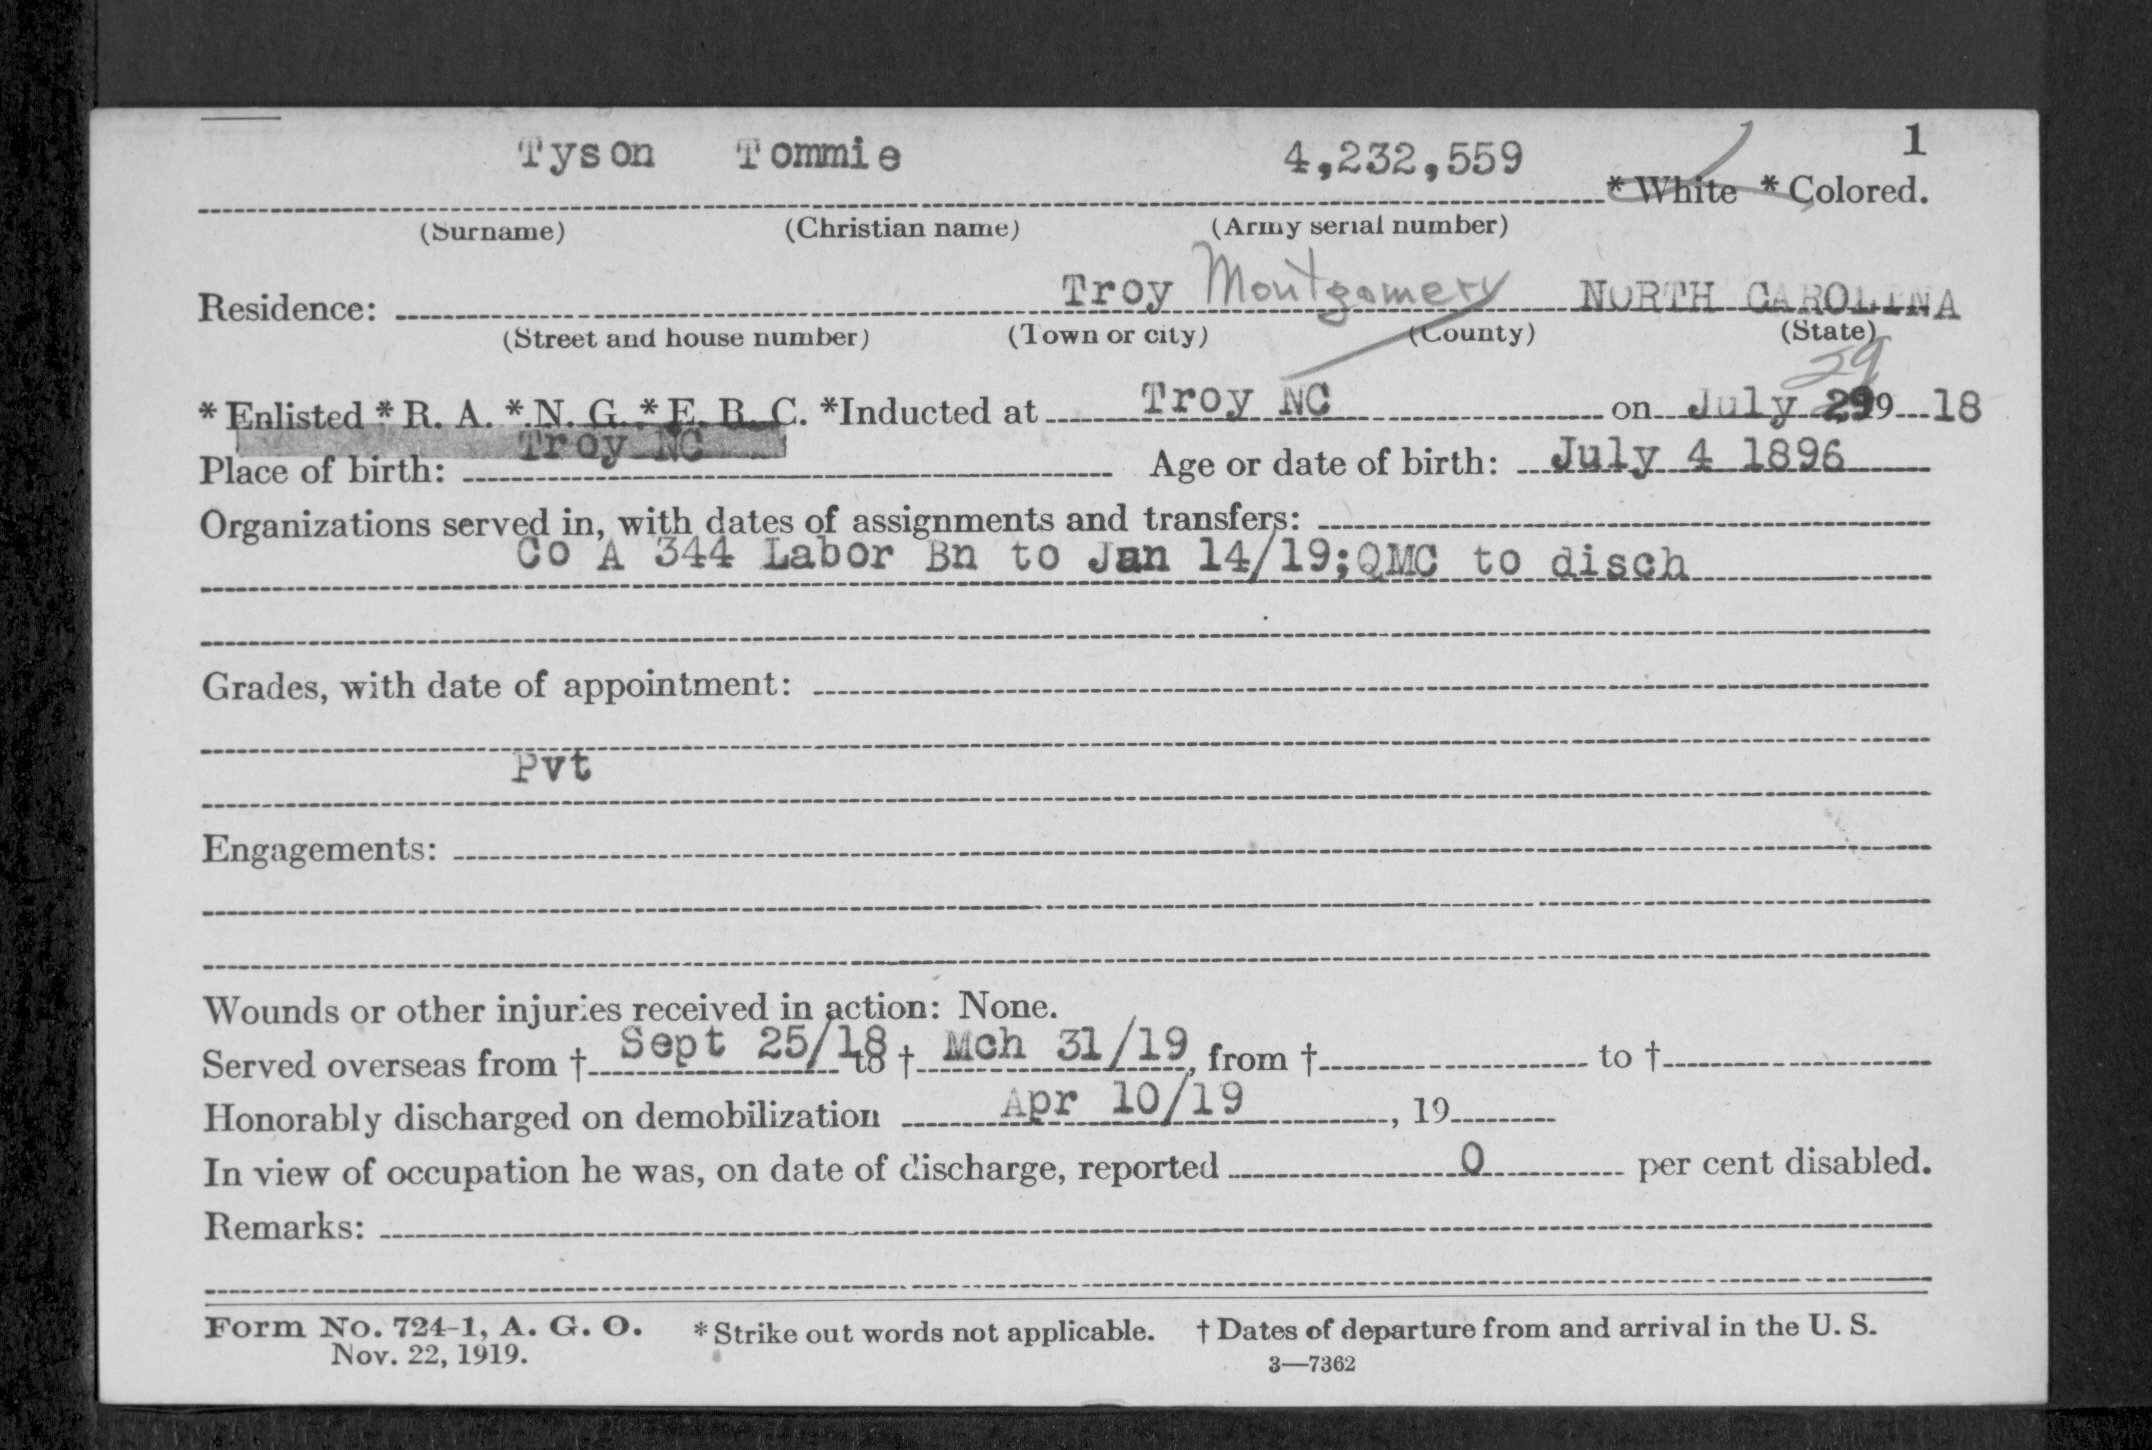 1
Tyson Tommie 4,232,559 * White * Colored.
(Surname) (Christian name) (Army serial number)
Residence: Troy Montgomery NORTH CAROLINA
(Street and house number) (Town or city) (County) (State)
29
* Enlisted * R. A. * N. G. * E. R. C. * Inducted at Troy NC on July 29 19 18
Place of birth: Troy NC Age or date of birth: July 4 1896
Organizations served in, with dates of assignments and transfers:
Co A 344 Labor Bn to Jan 14/19; QMC to disch
Grades, with date of appointment:
Pvt
Engagements:
Wounds or other injuries received in action: None.
Served overseas from † Sept 25/18 to † Mch 31/19, from † to †
Honorably discharged on demobilization Apr 10/19, 19
In view of occupation he was, on date of discharge, reported 0 per cent disabled.
Remarks:
Form No. 724-1, A. G. O. * Strike out words not applicable. † Dates of departure from and arrival in the U. S.
Nov. 22, 1919. 3—7362